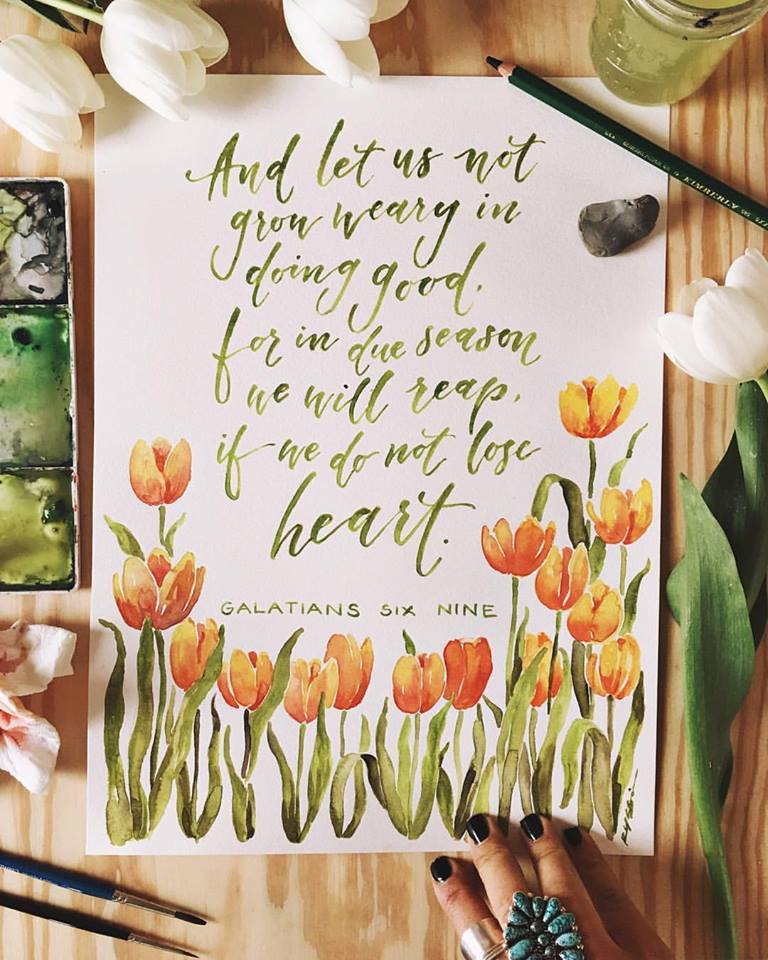 And let us not
grow weary in
doing good.
for in due season
we will reap,
if we do not lose
heart.
GALATIANS SIX NINE
KIMBERLY